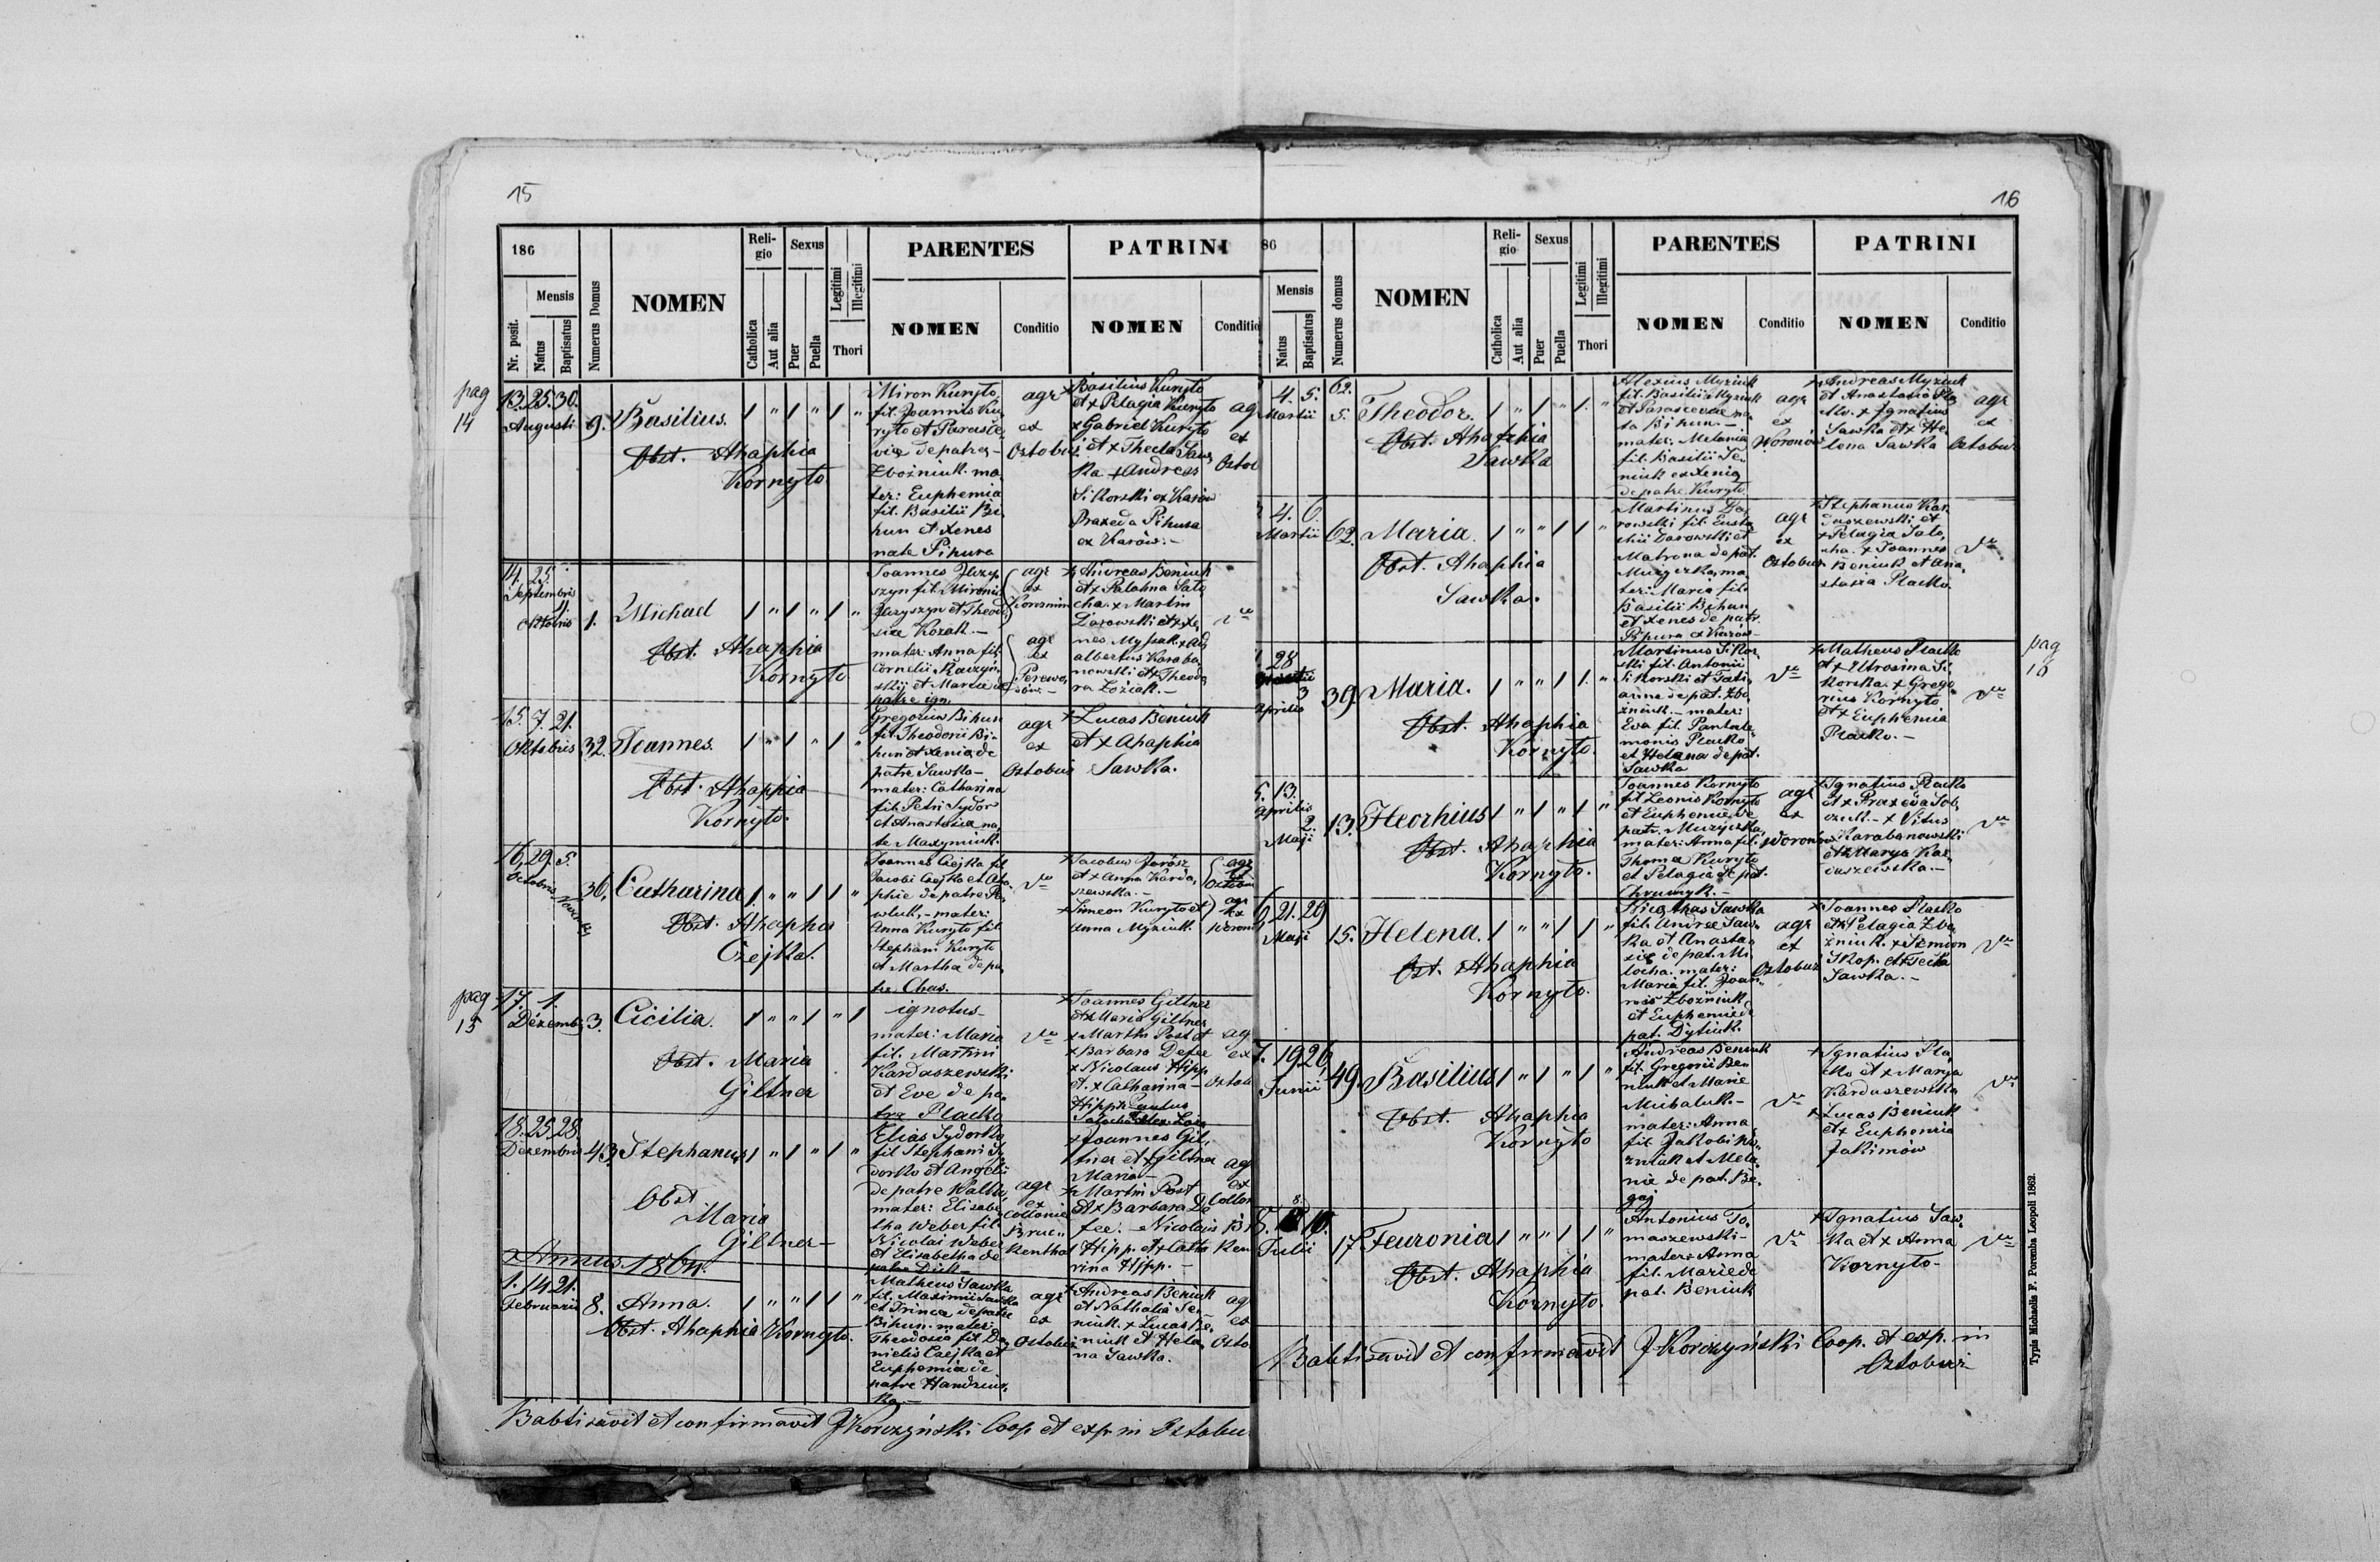 15
186
Mensis
Nr. posit.
Natus
Baptisatus
Numerus Domus
NOMEN
Religio
Catholica
Aut alia
Sexus
Puer
Puella
Legitimi
Illegitimi
Thori
PARENTES
NOMEN
Conditio
PATRINI
NOMEN
Conditio
pag
14
13. 25. 30.
Augusti
9.
Basilius.
1 " 1 " 1 "
Obst. Ahaphia
Kornyto
Miron Kuryto
fil. Joannis Ku
ryto et Parasce
viae de patre
Zboiniuk. ma
ter: Euphemia
fil. Basilii Bi
hun et Xenes
nate Pipura
agr
ex
Ostobuz
Basilius Kuryto
et x Pelagia Kuryto
x Gabriel Kuryto
et x Thecla Saw
ka x Andreas
Sikorski ex Karów
Praxeda Pihura
ex Karów.
agr
ex
Ostob
14. 25.
Septembris
1.
Oktobris
1.
Michael
1 " 1 " 1 "
Obst. Ahaphia
Kornyto
Joannes
szyn fil. Mironis
et Theodo
siae Kozak.
mater: Anna fil.
Cornelii Raczyń
skij et Mariae de
patre ign.
agr
ex
Korczmin
agr
ex
Perewo
dów.
x Andreas Beniuk
et x Palahna Sato
cha. x Martin
Darowski et x Xe
nes Mysak. x Ad
albertus Karaba
nowski et x Theodo
ra Łoziak.
15. 7. 21.
Oktobris
32.
Joannes.
1 " 1 " 1 "
Obst. Ahaphia
Kornyto.
Gregorius Bihun
fil. Theodorii Bi
hun et Xenia de
patre Sawka
mater: Catharina
fil. Petri Sydor
et Anastasia na
te Maxymiuk.
agr
ex
Ostobuz
x Lucas Beniuk
et x Ahaphia
Sawka.
16. 29. 5.
Octobris
30.
Catharina
1 " " 1 1 "
Obst. Ahaphia
Czejka.
Joannes Czejka fil
Jacobi Czejka et Aha
phie de patre Pa
wluk, mater:
Anna Kuryto fil
Stephani Kuryto
et Martha de pa
tre Chas.
x Jacobus Jarosz
et x Anna Karda
szewska.
x Simeon Kuryto et
Anna Myziuk.
agr
ex
pag
15
17. 1.
Dezemb.
3.
Cicilia.
1 " " 1 " 1
Obst. Maria
Giltner
ignotus
mater: Maria
fil. Martini
Kardaszewski
et Eve de pa
tre Placko
x Joannes Giltner
et x Maria Giltner
x Martin Post et
x Barbara Defee
x Nicolaus Hipp
et x Catharina
Hipp.
agr
ex
Ostob
18. 25. 28.
Dezembris
43.
Stephanus
1 " 1 " 1 "
Obst
Maria
Giltner
Elias Sydorko
fil Stephani Sy
dorko et Angeli
de patre Kalko,
mater: Elisabe
tha Weber fil.
Nicolai Weber
et Elisabetha de
patre Dick
agr
ex
Collonia
Bruc
kenthal
x Joannes Gil
tner et x Giltner
Maria
x Martin Post
et x Barbara De
fee. Nicolaus
Hipp. et x Catha
rina Hipp.
ag
ex
Collon
Br
ken
Annus 1864.
1. 14. 21.
Februarii
8.
Anna.
1 " " 1 1 "
Obst. Ahaphia Kornyto.
Matheus Sawka
fil. Maximii Sawka
et Irinea de patre
Bihun. mater:
Theodosia fil. Da
nielis Czejka et
Euphemia de
patre Handziu
ka.
agr
ex
Ostobuz
x Andreas Beniuk
et Nathalia Se
niuk. x Lucas Be
niuk et Hele
na Sawka.
ag
ex
Osto
Babtisavit et confirmavit JKorczyński Coop et exp in Ostobu
16
86
Mensis
Natus
Baptisatus
Numerus domus
NOMEN
Religio
Catholica
Aut alia
Sexus
Puer
Puella
Legitimi
Illegitimi
Thori
PARENTES
NOMEN
Conditio
PATRINI
NOMEN
Conditio
4. 5.
Martii
62.
5.
Theodor.
1 " 1 " 1. "
Obst. Ahaphia
Sawka
Alexius Myziuk
fil. Basilii Myziuk
et Parascevae na
ta Bihun.
mater: Melania
fil. Basilii Se
niuk ex Xenia
de patre Kuryto
agr
ex
Woronów
x Andreas Myziuk
et Anastasia Pla
cko. x Ignatius
Sawka et x He
lena Sawka
agr
ex
Ostobuz
4. 6.
Martii
62.
Maria.
1 " " 1 1 "
Obst. Ahaphia
Sawka.
Martinus Da
rowski fil. Eusta
chii Darowski et
Matrona de pat.
Muzyczka, ma
ter: Maria fil.
Basilii Bihun
et Xenes de patr
Pipura ex Karów
agr
ex
Ostobuz
x Stephanus Kar
daszewski et
x Pelagia Sato
cha. x Joannes
Beniuk et Ana
stasia Placko.
pag
16
28
3
Aprilis
39.
Maria.
1 " " 1 1. "
Obst. Ahaphia
Kornyto.
Martinus Sikor
ski fil. Antonii
Sikorski et Tati
anna de pat. Zbo
żniuk. mater:
Eva fil. Pantale
monis Placko
et Helena de pat.
Sawka
x Matheus Placko
et x Efrosina Si
korska. x Grego
rius Kornyto
et x Euphemia
Placko.
5. 13.
Aprilis
2.
Maji
13.
Heorhius
1 " 1 " 1 "
Obst. Ahaphia
Kornyto.
Joannes Kornyto
fil Leonis Kornyto
et Euphemie de
patr. Muzyczka,
mater: Anna fil.
Thoma Kuryto
et Pelagia de pat.
Chrumyk.
agr
ex
Woronów
x Ignatius Placko
et x Praxeda Sob
czuk. x Vitus
Karabanowski
et x Marya Kar
daszewska.
6. 21. 29
Maji
15.
Helena.
1 " " 1 1 "
Obst. Ahaphia
Kornyto.
Nicethas Sawka
fil. Andree Saw
ka et Anasta
sie de pat. Mi
locha. mater:
Maria fil. Joan
nis Zbożniuk
et Euphemie de
pat. Dytiuk.
agr
ex
Ostobuz
x Joannes Placko
et x Pelagia Zbo
żniuk. x Semion
Skop. et x Tecla
Sawka.
7. 19 26,
Junii
49.
Basilius
1 " 1 " 1 "
Obst. Ahaphia
Kornyto
Andreas Beniuk
fil. Gregorii Ben
niuk et Marie
Mihaluk.
mater: Anna
fil. Jakobi
et Mela
nie de pat. Be
gaj
x Ignatius Pla
cko et x Marya
Kardaszewska
x Lucas Beniuk
et x Euphemia
Jakimów
8. 8. 10.
Julii
17
Feuronia
1 " " 1 1 "
Obst. Ahaphia
Kornyto.
Antonius To
maszewski
mater: Anna
fil. Marie de
pat. Beniuk
x Ignatius Saw
ka et x Anna
Kornyto
Babtisavit et confirmavit J Korczyński Coop. et exp. in
Ostobuz
Typis Michaelis F. Poremba Leopoli 1862.